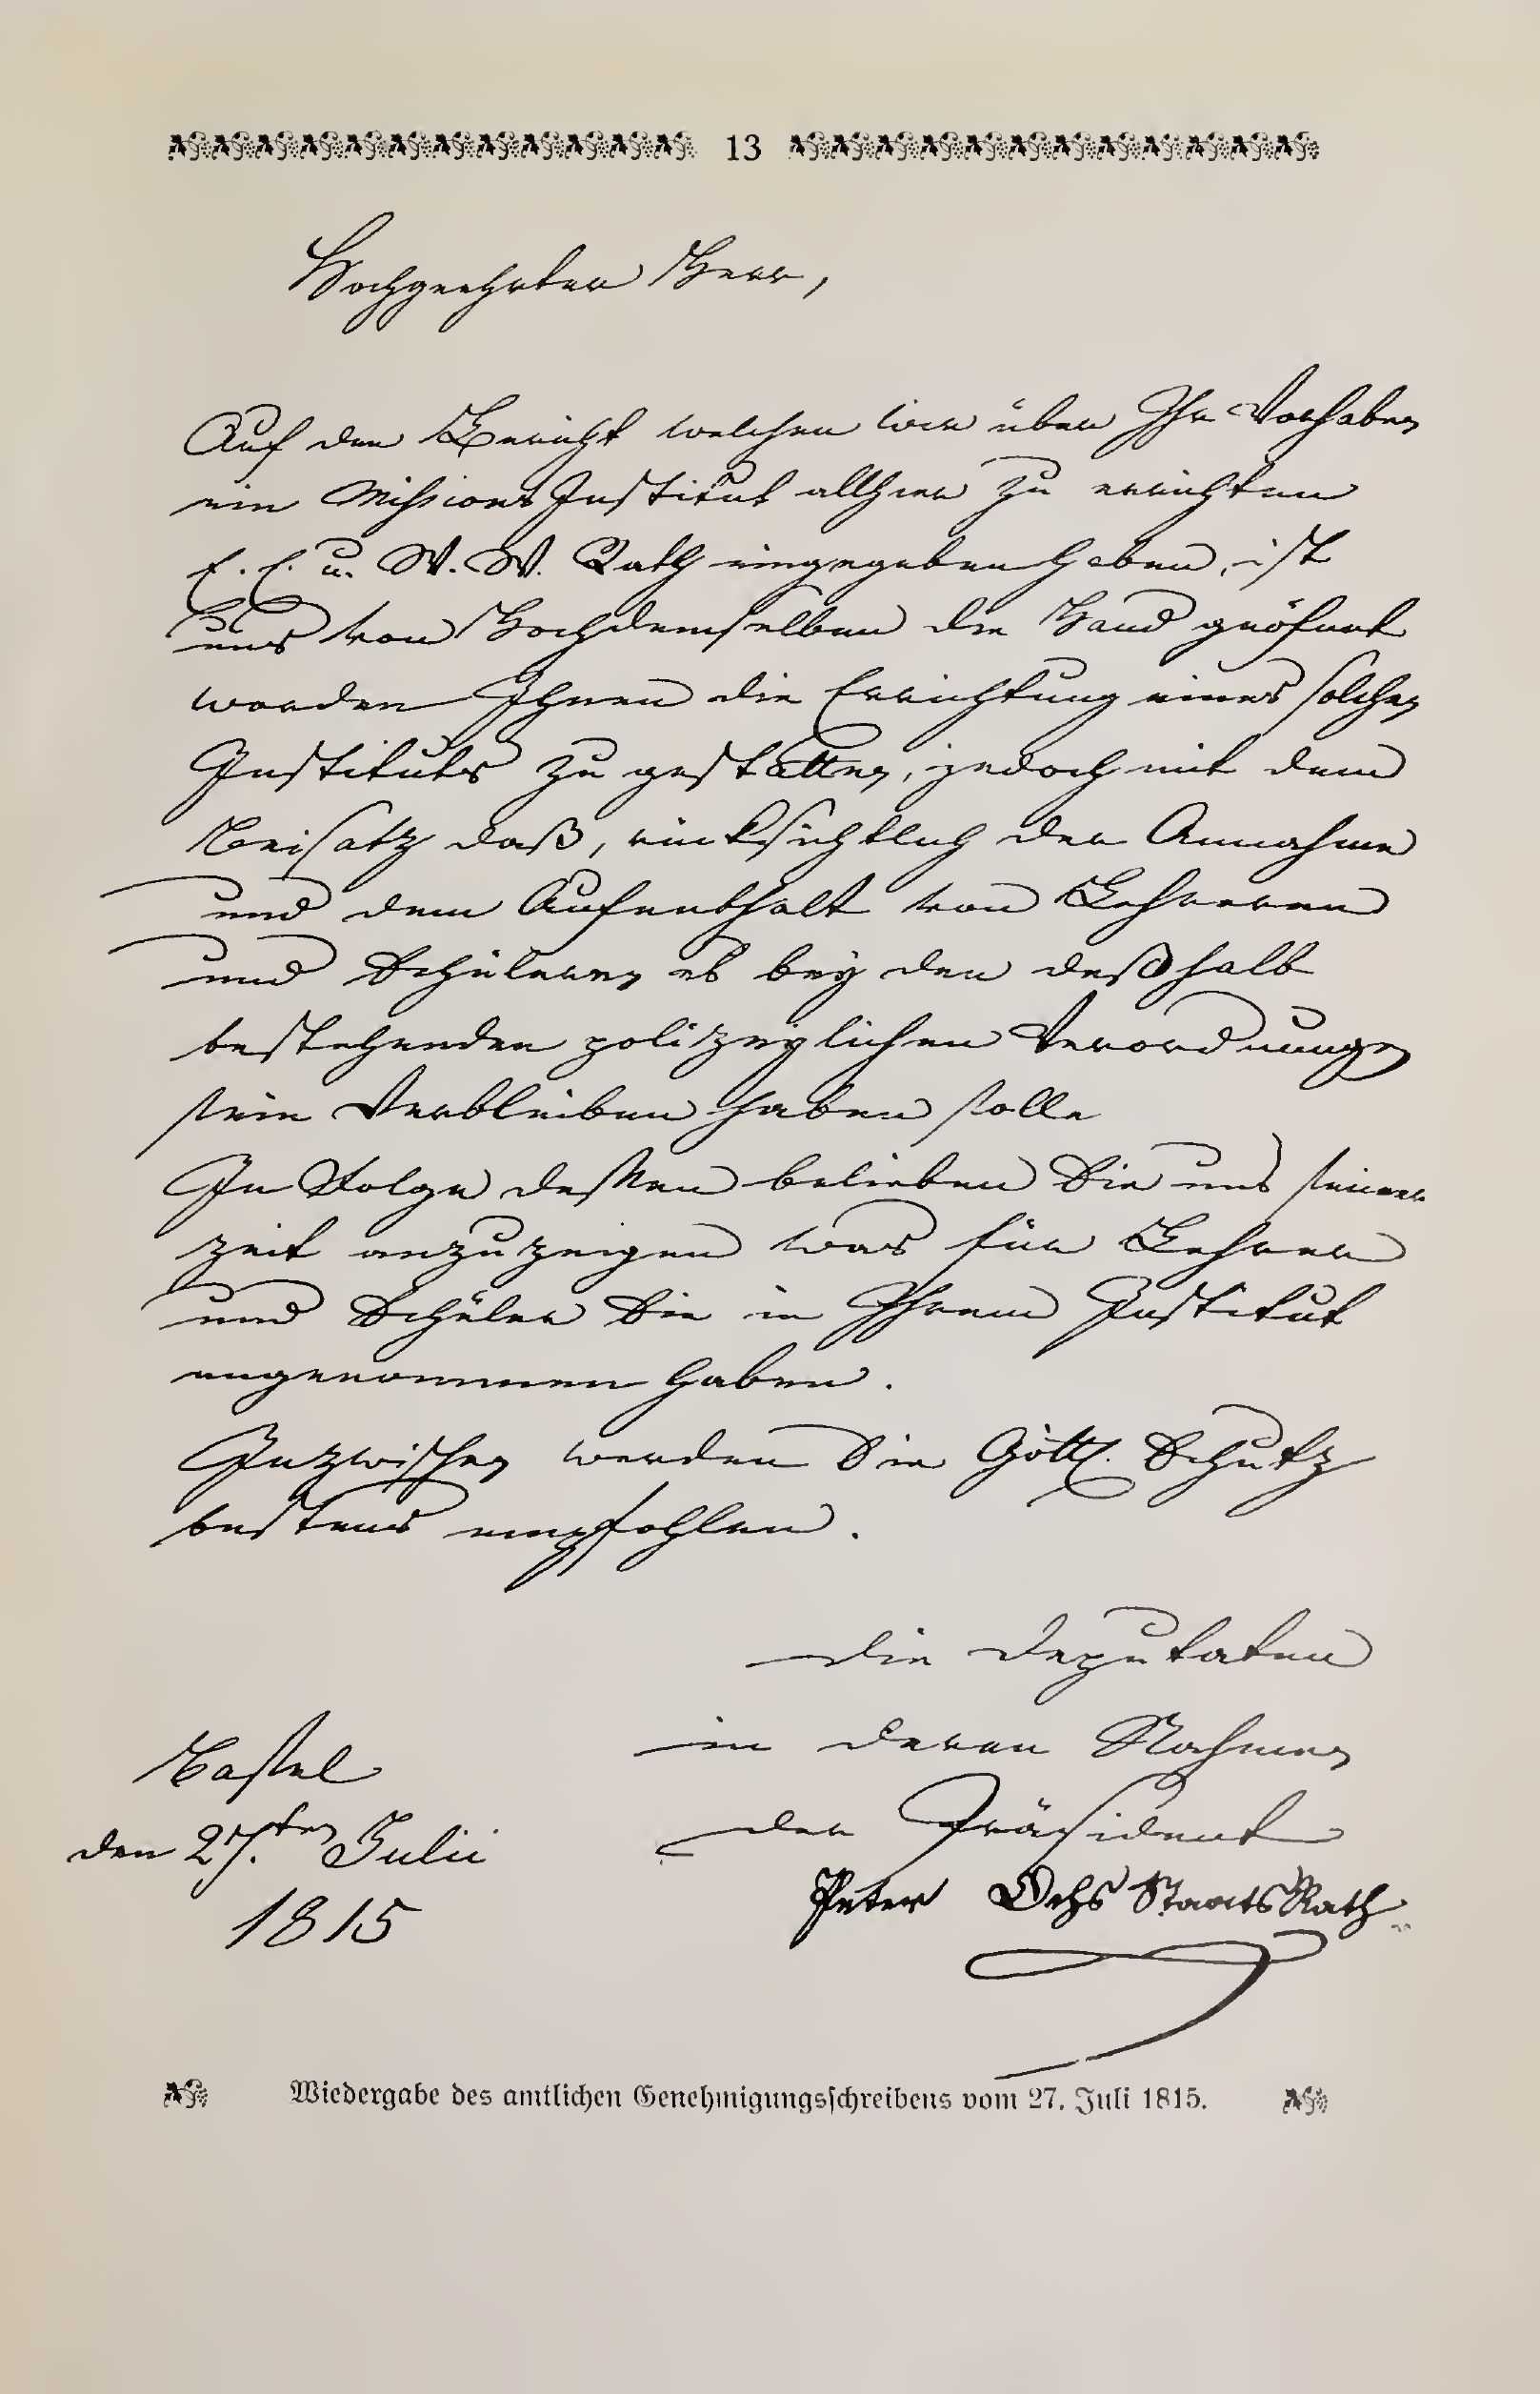 13
Hochgeehrter Herr,
Auf den Bericht welchen wir über Ihr Vorhaben
ein Missions Institut allhier zu errichten
E. E. u. W. W. Rath eingegeben haben, ist
uns von Hochdemselben die Hand geöfnet
worden Ihnen die Errichtung eines solchen
Instituts zu gestatten, jedoch mit dem
Beisatz daß, rücksichtlich der Annahme
und dem Aufenthalt von Lehreren
und Schüleren es bey den deßhalb
bestehenden polizeylichen Verordnungen
sein Verbleiben haben solle
In Folge dessen belieben Sie uns seiner
zeit anzuzeigen was für Lehrer
und Schüler Sie in Ihrem Institut
angenommen haben.
Inzwischen werden Sie Göttl. Schutz
bestens empfohlen.
die Deputaten
in deren Nahmen
der Präsident
Peter Ochs Staats Rath
Bassel
den 27.ten Julii
1815
Wiedergabe des amtlichen Genehmigungsschreibens vom 27. Juli 1815.